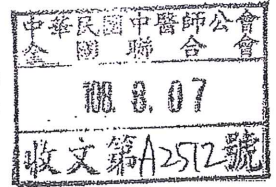 中華民國中醫師公會
全國聯合會
108. 8. 07
收文第A2572號